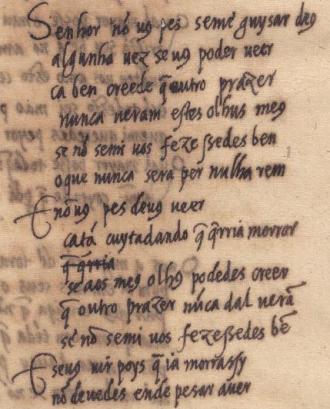 Senhor nõ uꝯ pes semẽ guysar deꝯ
algunha uez seuꝯ poder ueer
ca ben creede q̃ outro prazer
nunca ueram estes olhus meꝯ
se nõ semi uos fezessedes ben
o que nunca sera per nulha rem
E nõ uꝯ pes deuꝯ ueer
ca tã cuytadando q̃ q̃rria morrer
q̃ q̃rria
se aos meꝯ olhꝯ podedes creer
q̃ outro prazer nũca dal uerã
se nõ semi uos fezessedes bẽ
E seuꝯ uir poys q̃ ia morrassy
nõ deuedes ende pesar auer